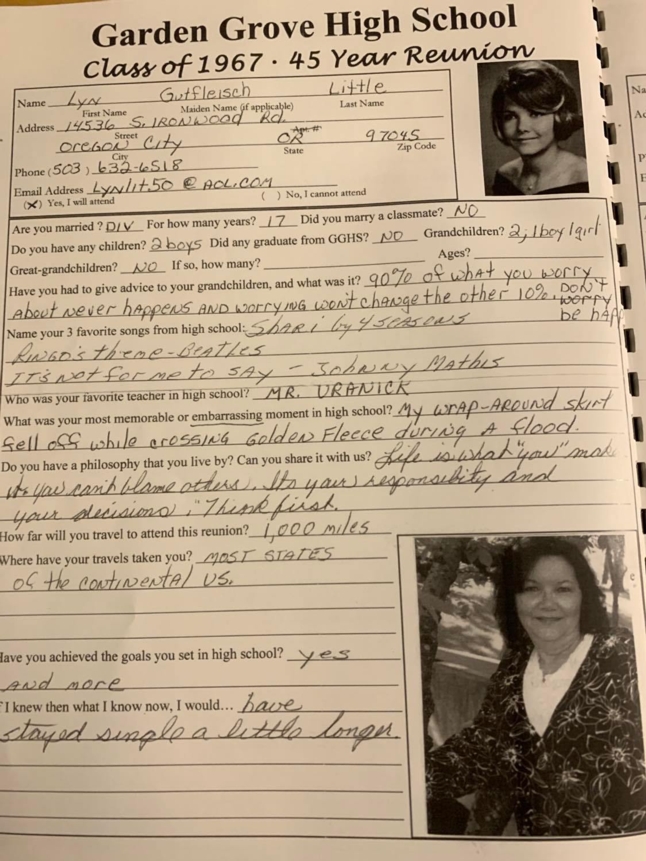 Garden Grove High School
Class of 1967 · 45 Year Reunion
Name Lyn Gutfleisch Little
First Name Maiden Name (if applicable) Last Name
Address 14536 S. IRONWOOD Rd.
Street Apt. #
OREGON City OR 97045
City State Zip Code
Phone (503) 632-6518
Email Address LYNLIT50 @ AOL.COM
(X) Yes, I will attend ( ) No, I cannot attend
Are you married? DIV For how many years? 17 Did you marry a classmate? NO
Do you have any children? 2 boys Did any graduate from GGHS? NO Grandchildren? 2, 1 boy 1 girl
Great-grandchildren? NO If so, how many? Ages?
Have you had to give advice to your grandchildren, and what was it? 90% of what you worry
About never happens AND worrying won't change the other 10%. DON'T
worry
be hap
Name your 3 favorite songs from high school: Shari by 4 SEASONS
Ringo's theme - Beatles
IT'S Not for me to SAY - Johnny Mathis
Who was your favorite teacher in high school? MR. URANICK
What was your most memorable or embarrassing moment in high school? My WRAP-AROUND skirt
fell off while crossing Golden Fleece during A flood.
Do you have a philosophy that you live by? Can you share it with us? Life is what "you" make
it. You can't blame others. It's your responsibility and
your decisions. "Think first.
How far will you travel to attend this reunion? 1,000 miles
Where have your travels taken you? MOST STATES
of the continental US.
Have you achieved the goals you set in high school? yes
AND more
f I knew then what I know now, I would... have
stayed single a little longer.
Na
Ac
P
E